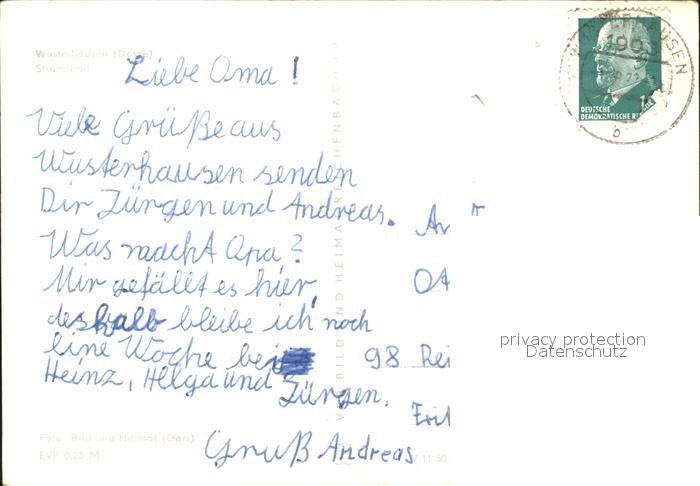 Wusterhausen (Dosse)
Strandbad
Liebe Oma!
Viele Grüße aus
Wusterhausen senden
Dir Jürgen und Andreas.
Was macht Opa?
Mir gefällt es hier,
deshalb bleibe ich noch
eine Woche bei
Heinz, Helga und
Jürgen.
Gruß Andreas
An
98 Rei
Foto: Bild und Heimat (Darr)
EVP 0,25 M
VEB BILD UND HEIMAT REICHENBACH I V
V 11 50
DEUTSCHE
DEMOKRATISCHE RE
190
72
b
privacy protection
Datenschutz